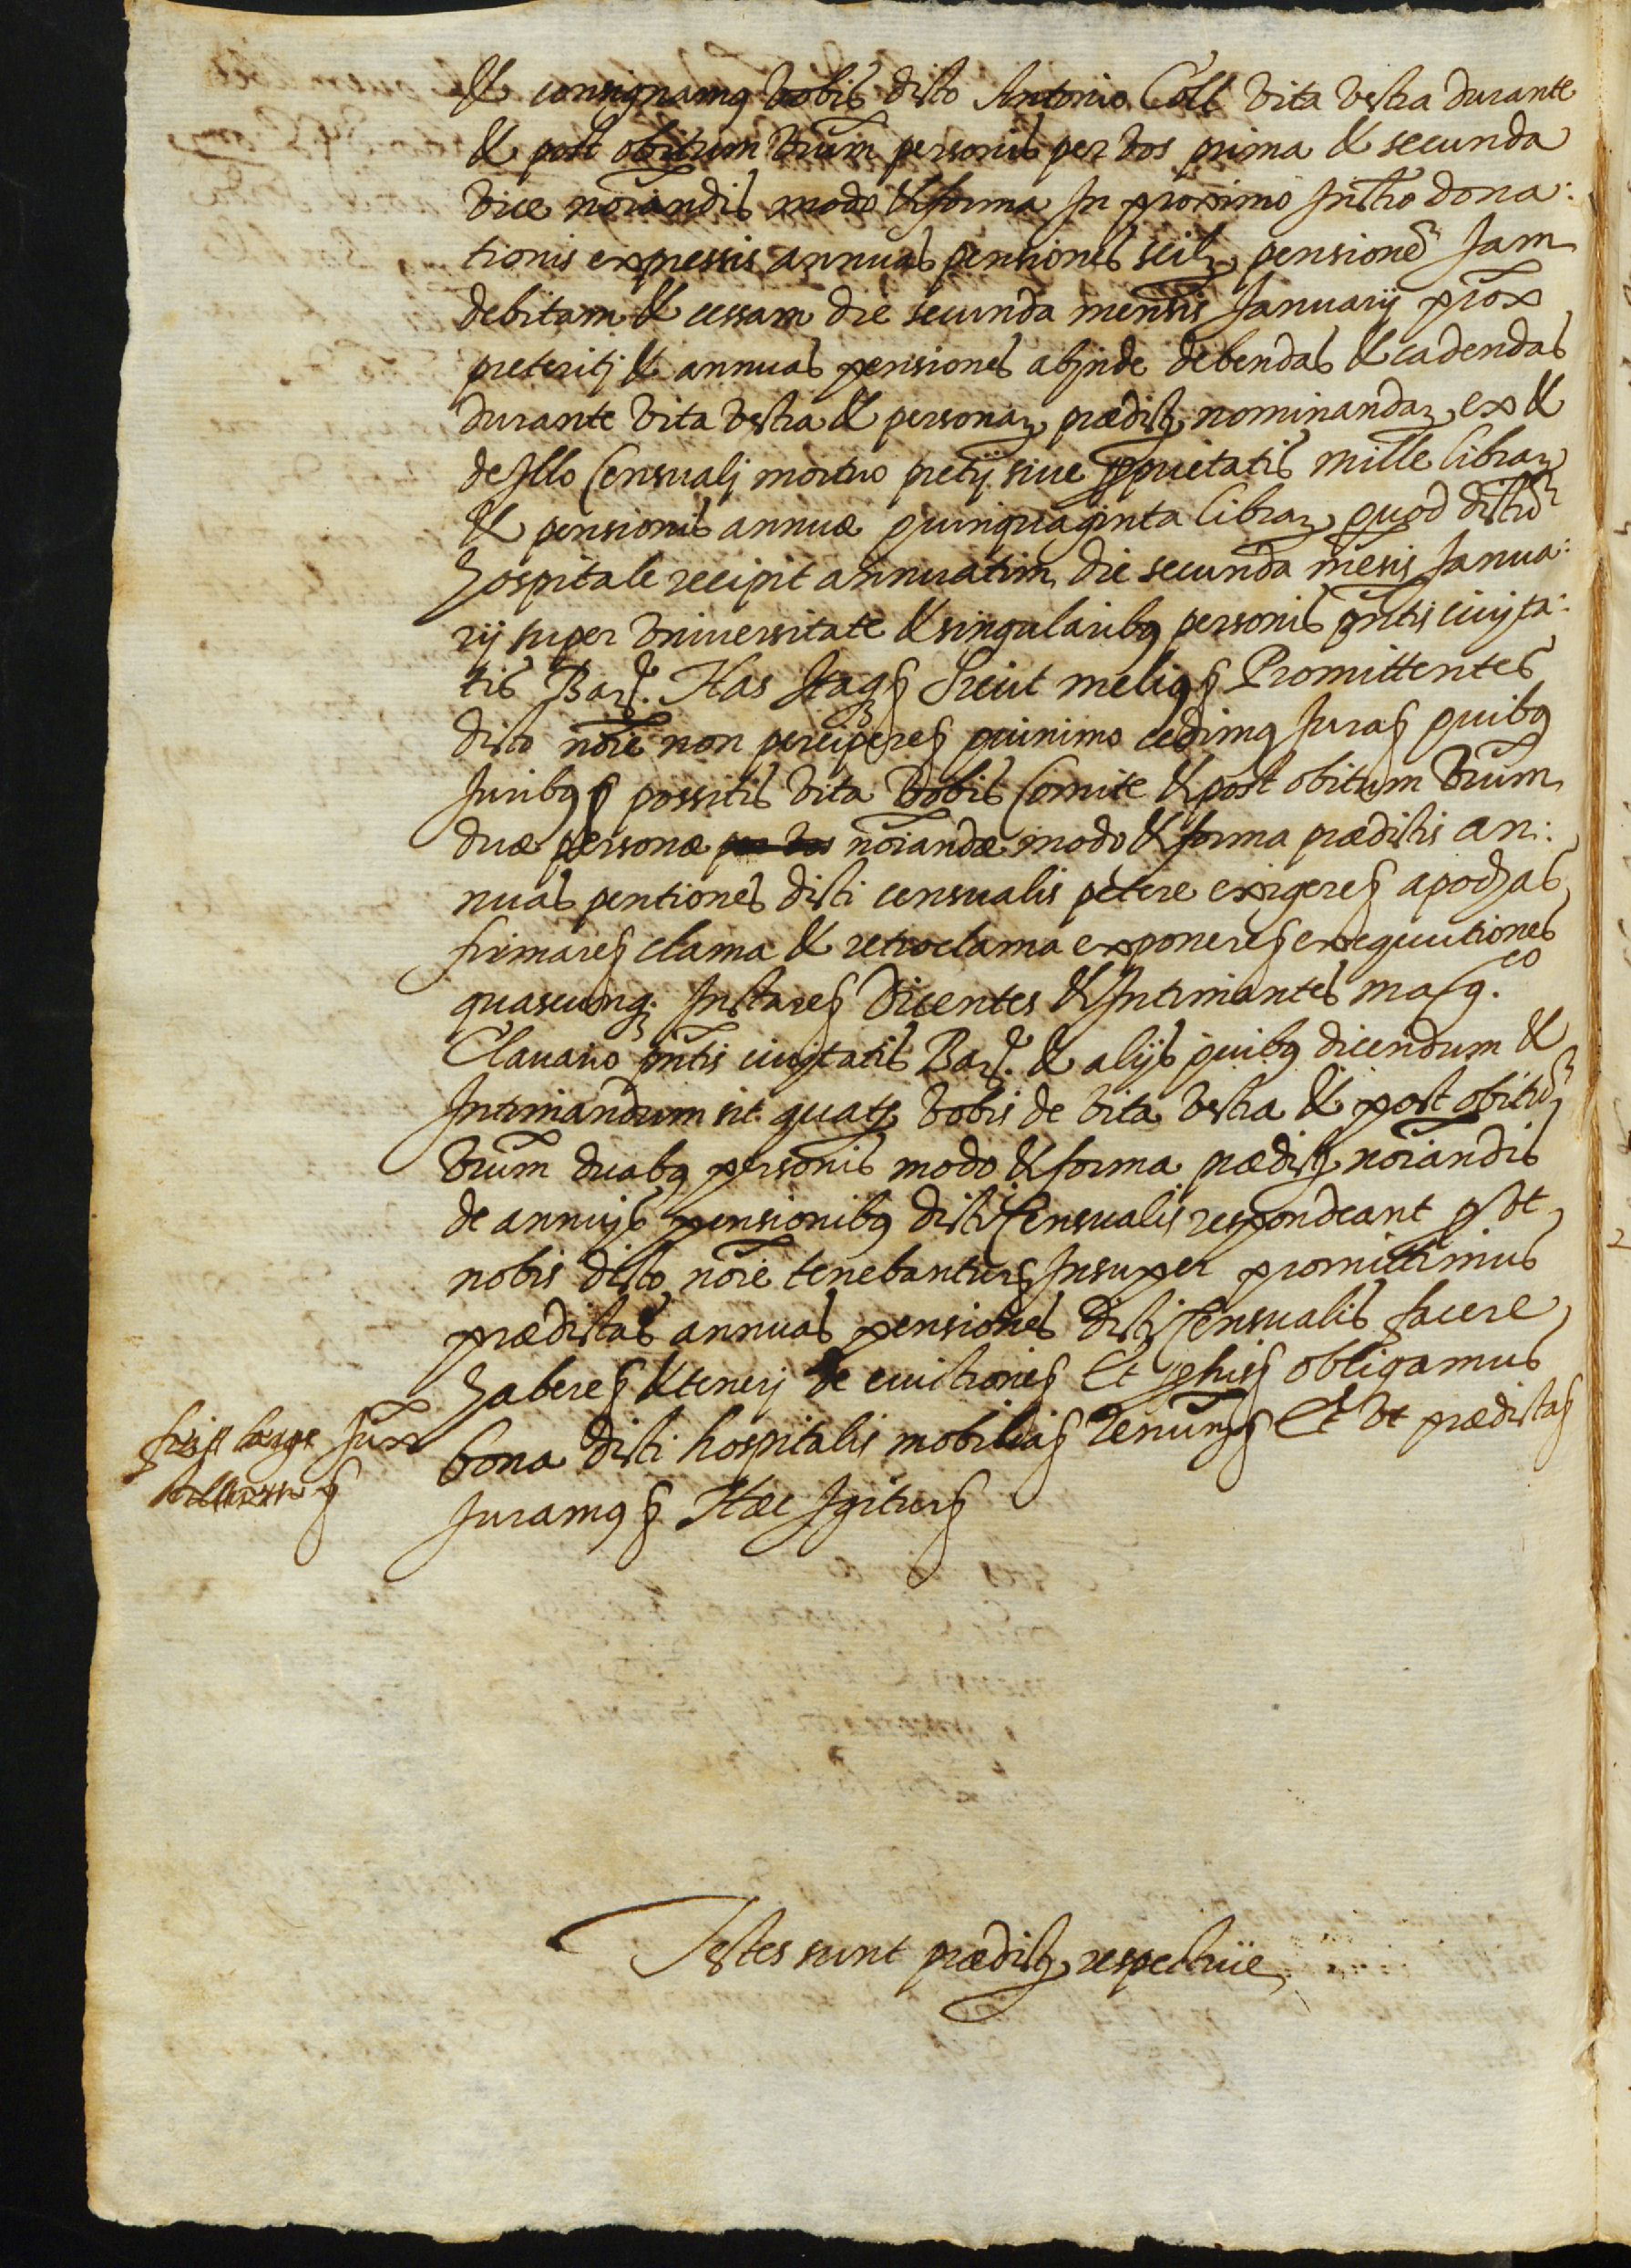 & consignamus vobis dicto Antonio Coll vita vestra durante
& post obitum vrum personis per vos prima & secunda
vice noiandis modo & forma In proximo Instro dona:
tionis expressis annuas pensiones scilz pensione Jam
debitam & cessam die secunda mensis Januarij prox
preteriti & annuas pensiones abinde debendas & cadendas
durante vita vestra & personar prædict nominandar ex &
de Illo Censuali mortuo pretij siue pprietatis mille librar
& pensionis annuæ quinquaginta librar quod dictu
hospitale recipit annuatim die secunda mesis Janua:
rij super vniuersitate & singularibus personis pntis ciuita:
tis Bar. Has Itaq Sicut melius Promittentes
dicto noie non percipere quinimo cedimus Jura quibus
Juribus possitis vita vobis Comite & post obitum vrum
duæ personæ per vos noiandæ modo & forma prædictis an:
nuas pentiones dicti censualis petere exigere apochas
firmare clama & retroclama exponere exequutiones
quascunq Instare Dicentes & Intimantes magco
Clauario pntis ciuitatis Bar. & alijs quibus dicendum &
Intimandum sit quats vobis de vita vestra & post obitu
vrum duabus personis modo & forma prædict noiandis
de annuis pensionibus dicti Censualis respondeant put
nobis dicto noie tenebantur Insuper promittimus
prædictas annuas pensiones dicti Censualis facere
habere & teneri de euictione Et p his obligamus
bona dicti hospitalis mobilia Renun Et vt prædicta
Juramus Hæc Igitur
fiat large Jux
Testes sunt prædict respectiue